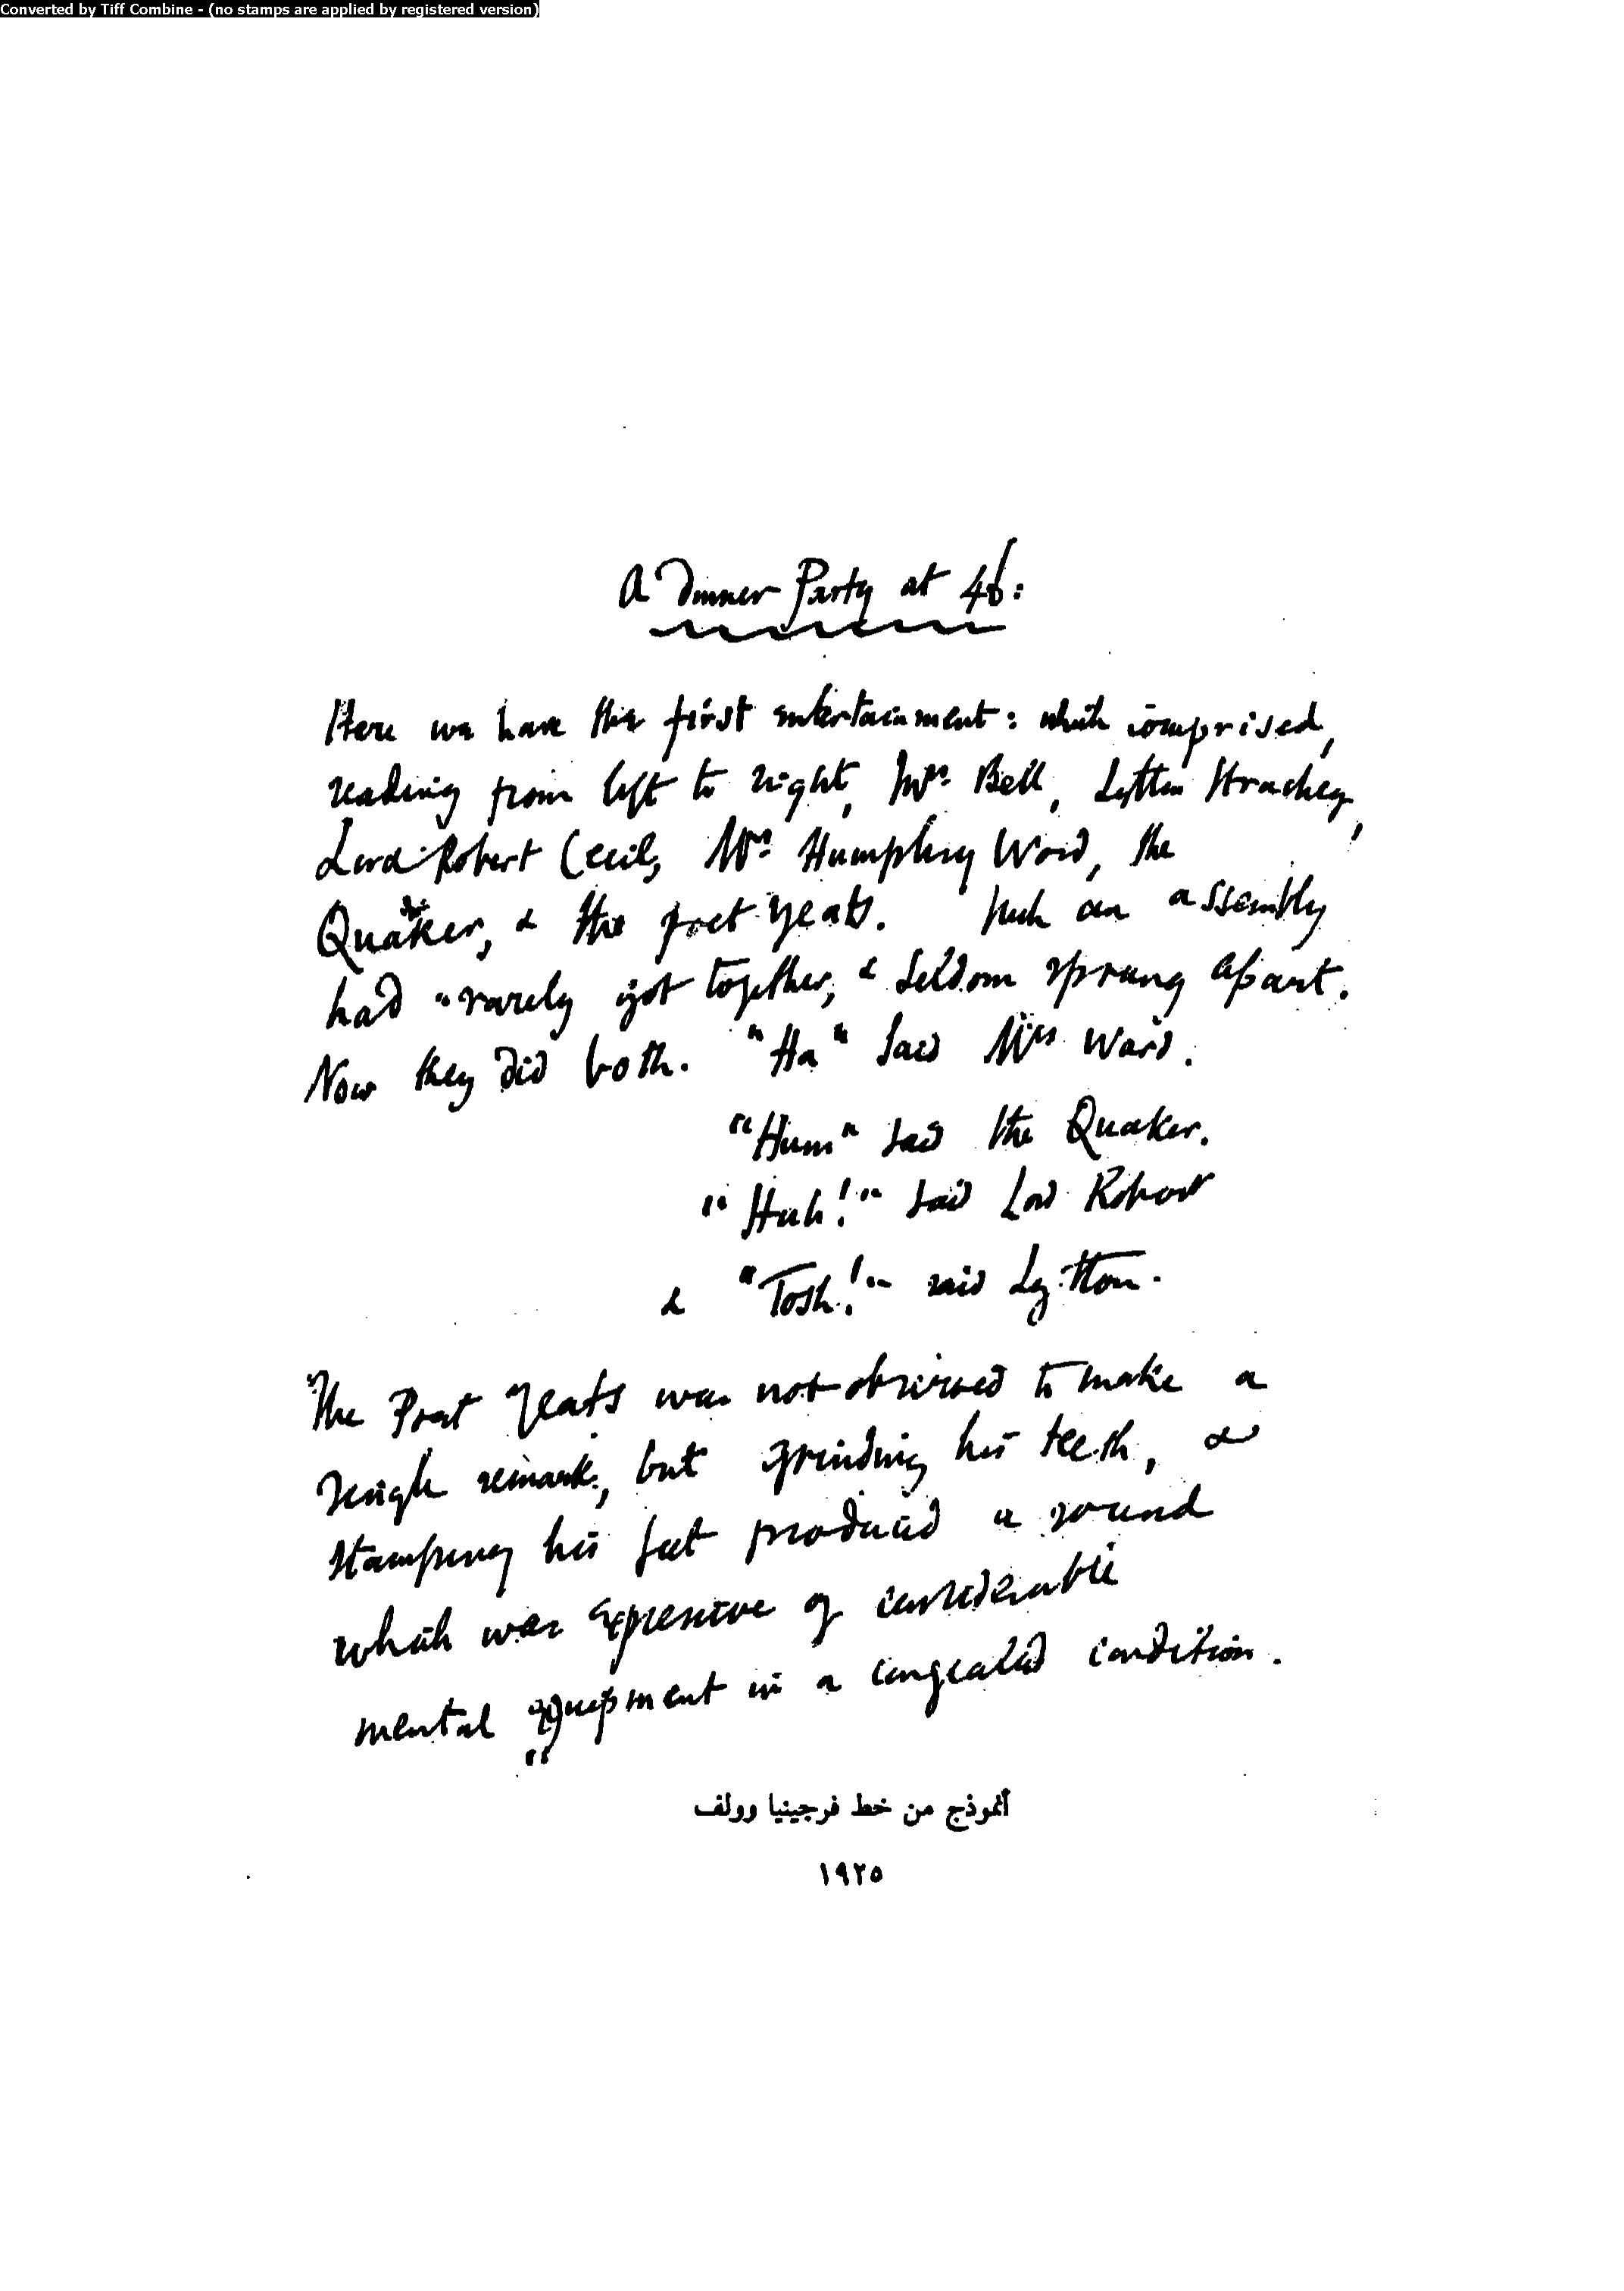 Converted by Tiff Combine - (no stamps are applied by registered version)
A Dinner Party at 46:
Here we have the first entertainment: which comprised,
reading from left to right, Mrs Bell, Lytton Strachey,
Lord Robert Cecil, Mrs Humphry Ward, the
Quaker, & the poet Yeats. Such an assembly
had rarely got together, & seldom sprung apart.
Now they did both. "Ha" said Mrs Ward.
"Hum" said the Quaker.
"Huh!" said Lord Robert
& "Tosh!" said Lytton.
The Poet Yeats was not observed to make a
single remark, but grinding his teeth, &
stamping his feet produced a sound
which was expressive of considerable
mental equipment in a congealed condition.
أنموذج من خط فرجينيا وولف
١٩٢٥